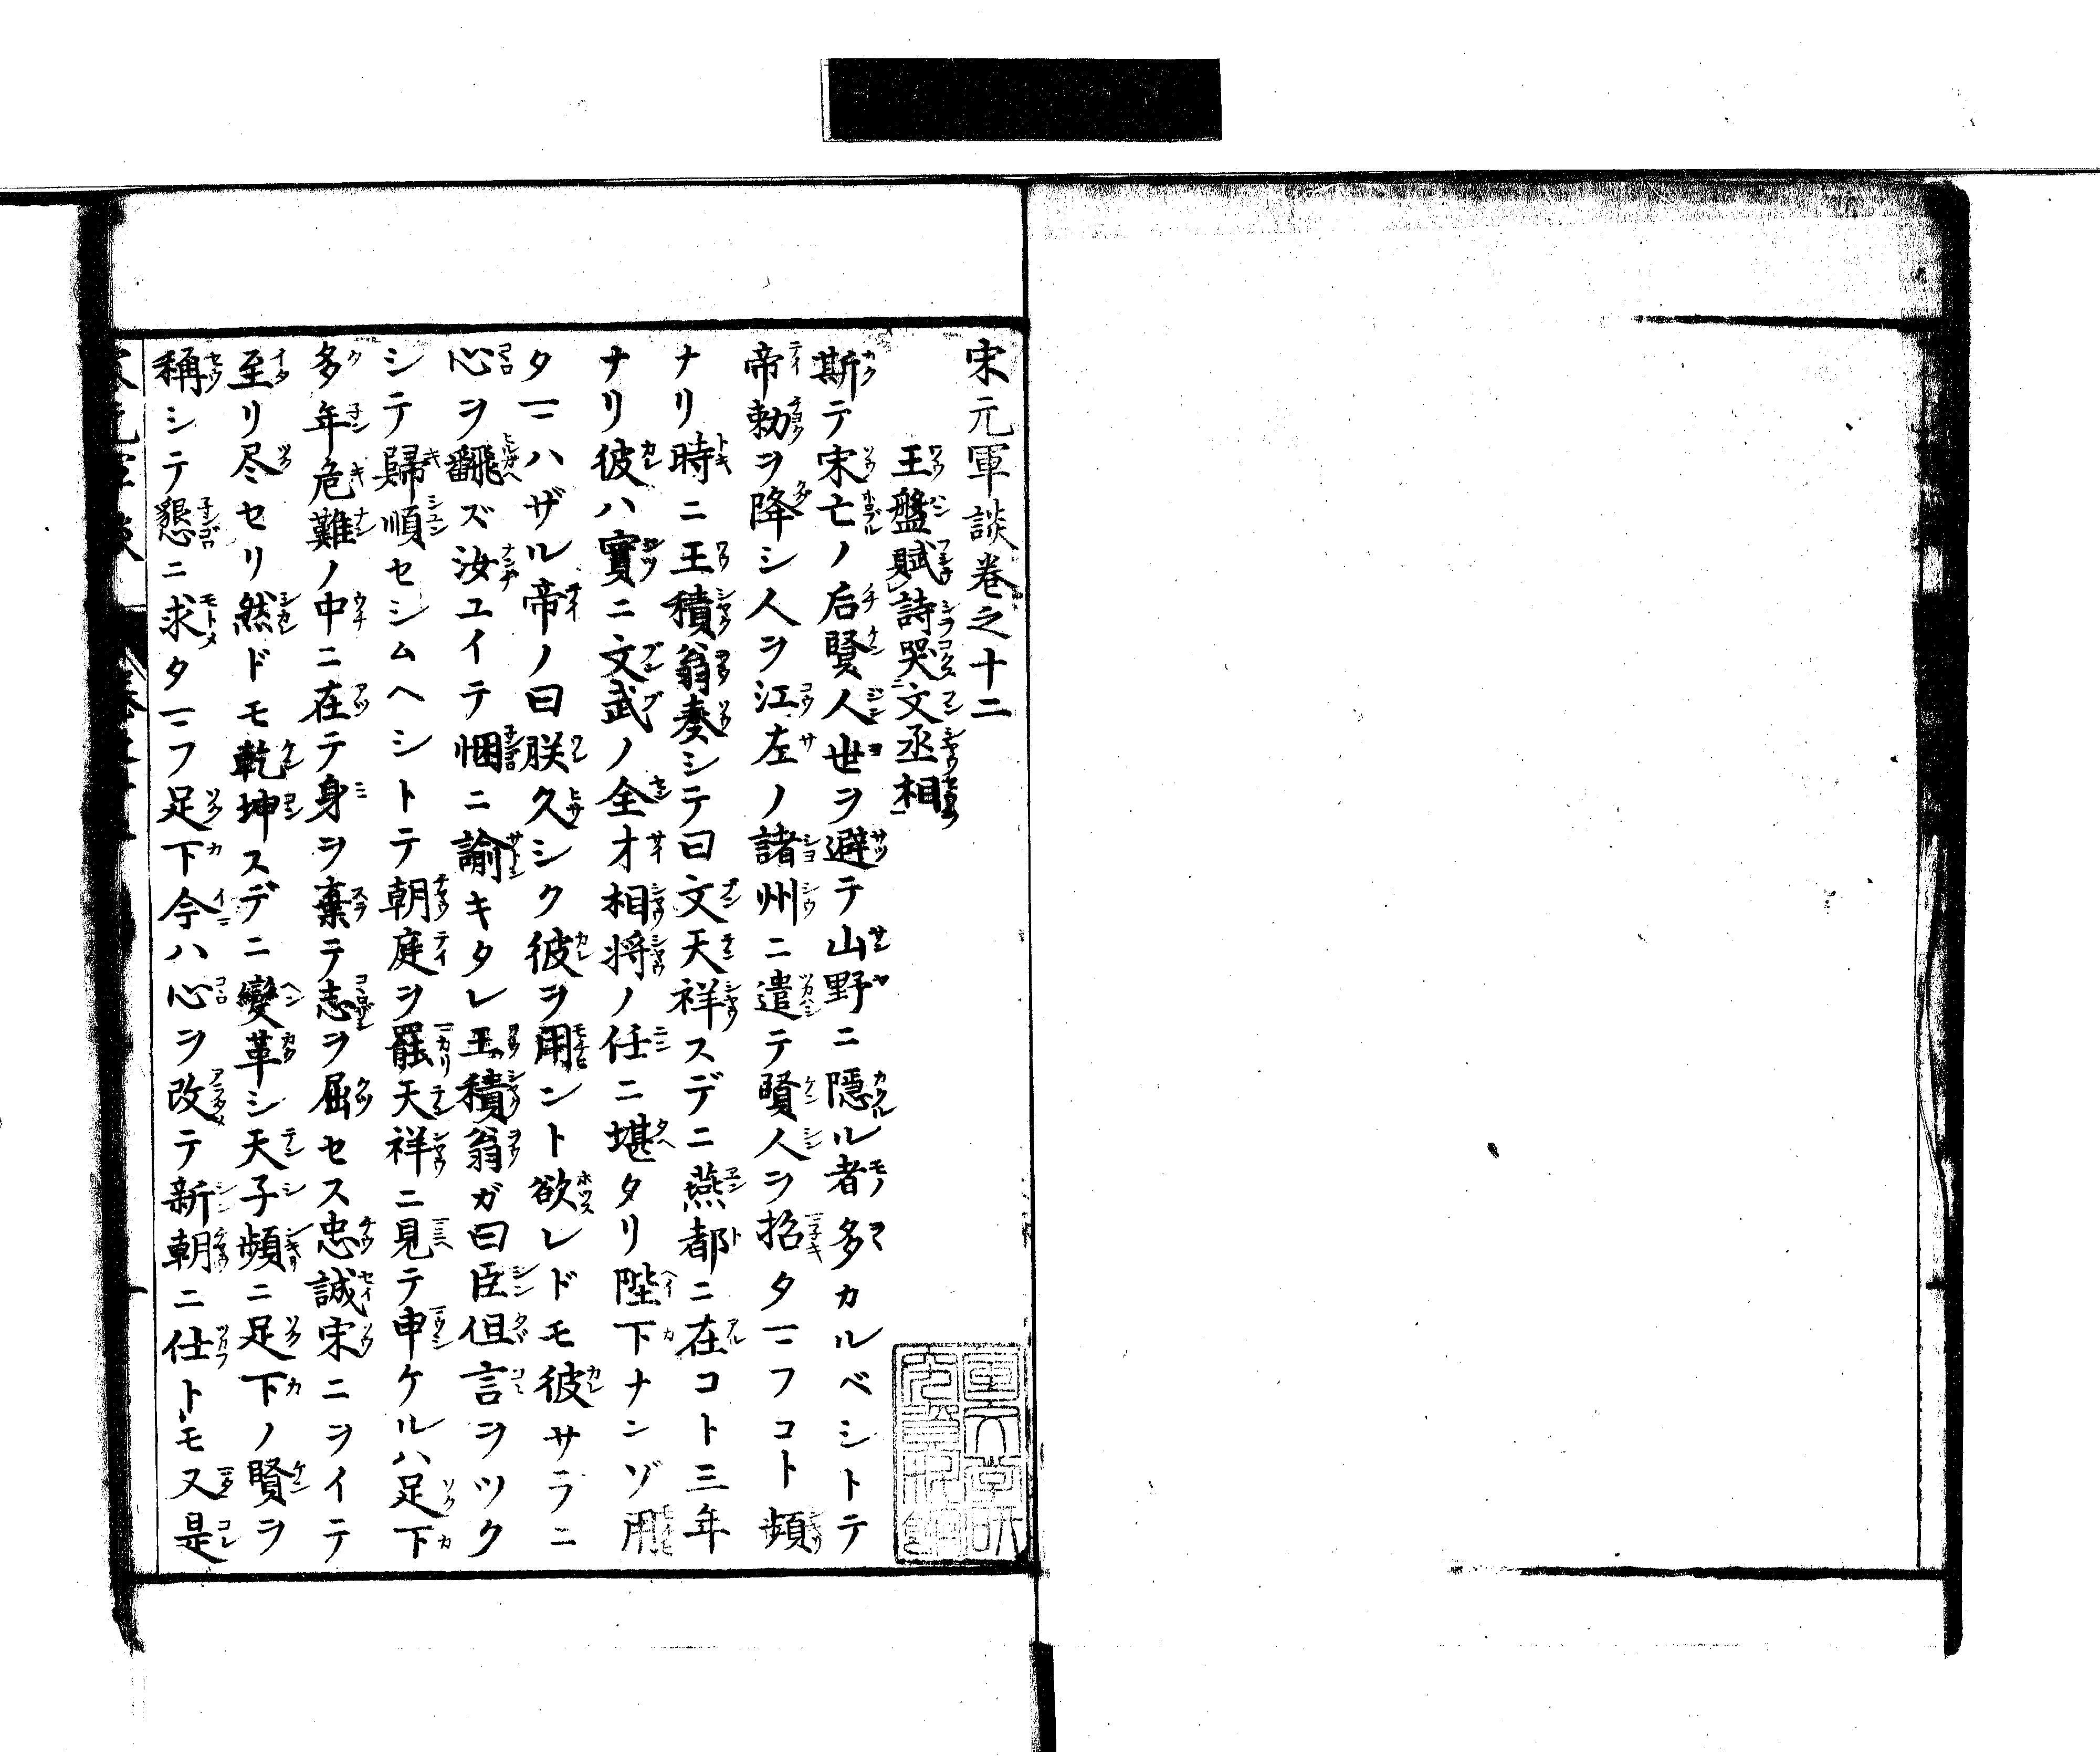 宋元軍談巻之十二
王盤賦詩哭文丞相
斯テ宋亡ノ后賢人世ヲ避テ山野ニ隠ル者多カルベシトテ
帝勅ヲ降シ人ヲ江左ノ諸州ニ遣テ賢人ヲ招タマフコト頻
ナリ時ニ王積翁奏シテ曰文天祥スデニ燕都ニ在コト三年
ナリ彼ハ實ニ文武ノ全才相将ノ任ニ堪タリ陛下ナンゾ用
タマハザル帝ノ曰朕久シク彼ヲ用ント欲レドモ彼サラニ
心ヲ翻ズ汝ユイテ悃ニ諭キタレ王積翁ガ曰臣但言ヲツク
シテ歸順セシムヘシトテ朝庭ヲ罷天祥ニ見テ申ケルハ足下
多年危難ノ中ニ在テ身ヲ棄テ志ヲ屈セス忠誠宋ニヲイテ
至リ尽セリ然ドモ乾坤スデニ變革シ天子頻ニ足下ノ賢ヲ
稱シテ懇ニ求タマフ足下今ハ心ヲ改テ新朝ニ仕トモ又是